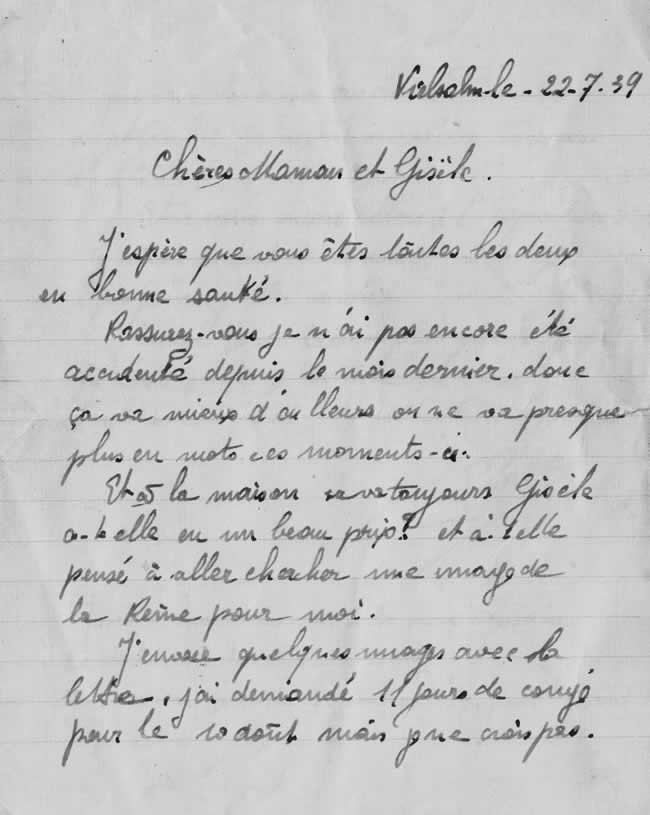 Vielsalm-le - 22-7.39
Chères Maman et Gisèle.
J'espère que vous êtes toutes les deux
en bonne santé.
Rassurez-vous je n'ai pas encore été
accidenté depuis le mois dernier. donc
ça va mieux d'ailleurs on ne va presque
plus en moto ces moments-ci.
Et à la maison ça va toujours Gisèle
a-t-elle eu un beau prix? et a-t-elle
pensé à aller chercher une image de
la Reine pour moi.
J'envoie quelques images avec la
lettre, j'ai demandé 11 jours de congé
pour le 10 août mais je ne crois pas.